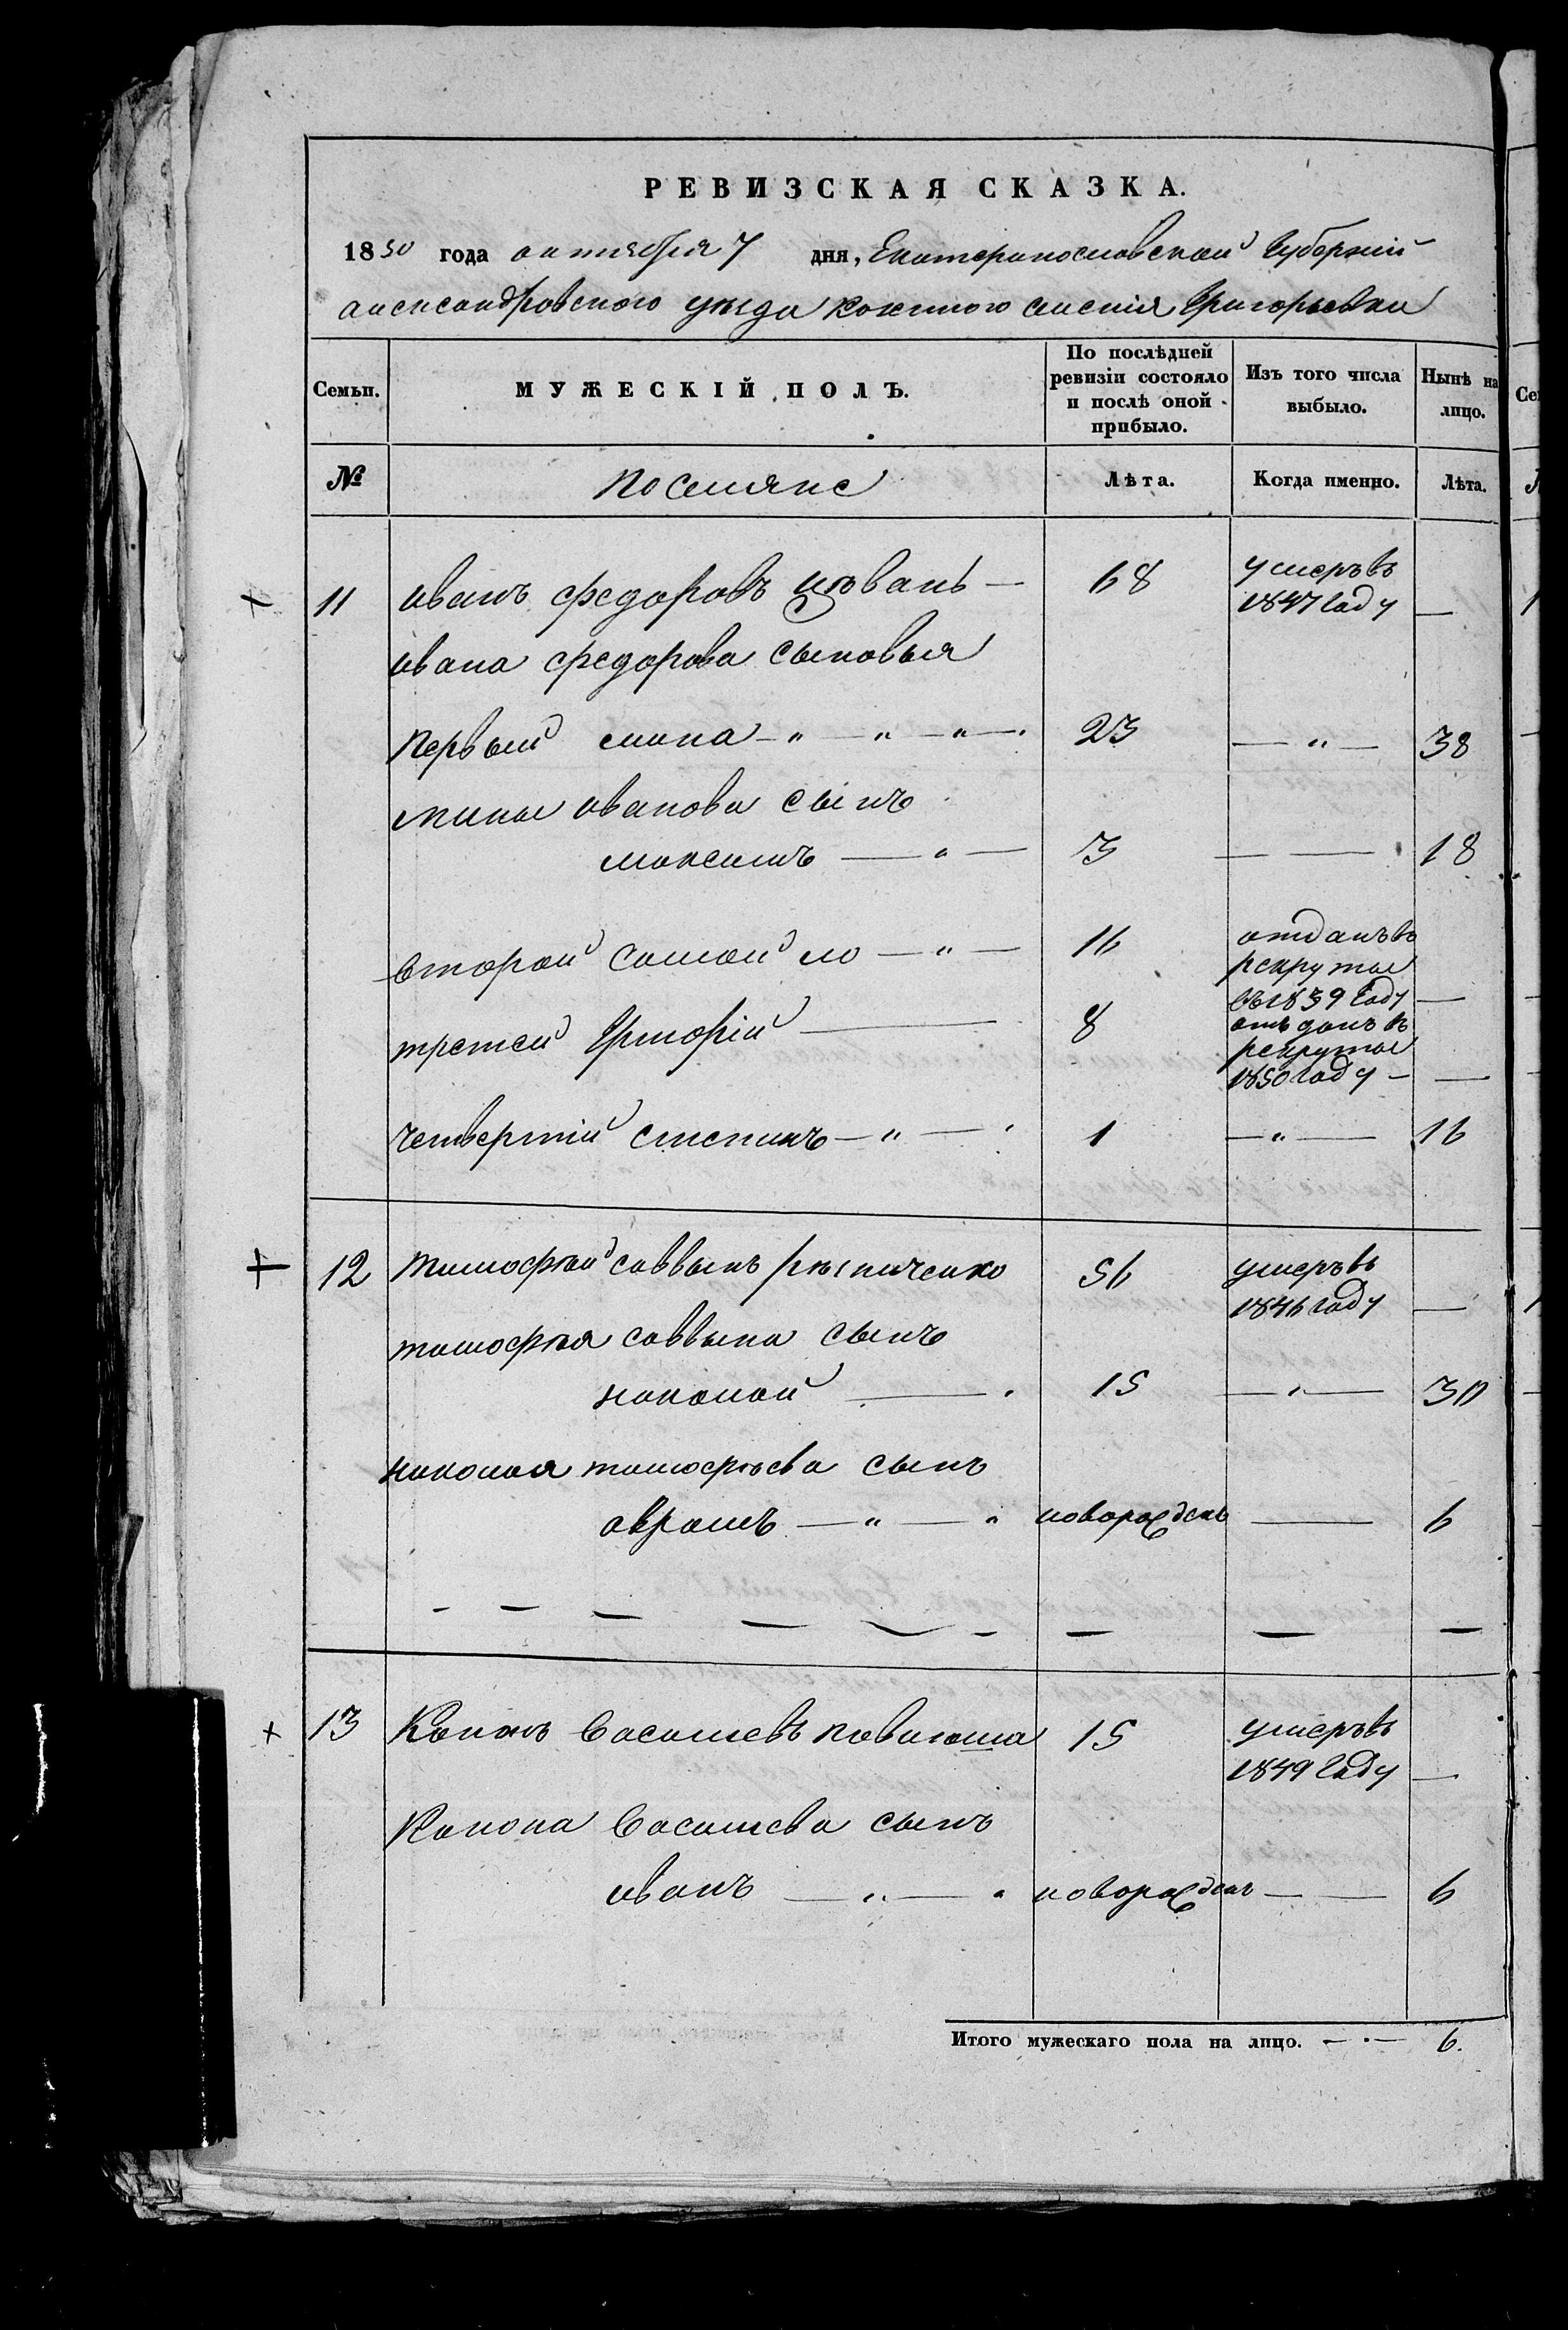 РЕВИЗСКАЯ СКАЗКА.
1850 года октября 7 дня, Екатеринославской Губерніи
александровского уезда казенного селенія Григорьевки
Семьи. МУЖЕСКІЙ ПОЛЪ. По послѣдней ревизіи состояло и послѣ оной прибыло. Изъ того числа выбыло. Нынѣ на лицо.
№ Поселяне Лѣта. Когда именно. Лѣта.
11 иванъ федоровъ 68 умеръ въ 1847 году —
ивана федорова сыновья
первый мина 23 — 38
мины иванова сынъ
максимъ 3 — 18
второй самойло 16 отданъ въ рекруты въ 1839 году —
третей Григорій 8 отъданъ в рекруты 1850 году —
четвертій степанъ 1 — 16
12 тимофѣй саввинъ 56 умеръ въ 1846 году —
тимофѣя саввина сынъ
николай 15 — 30
николая тимофѣева сынъ
аврамъ новорожденъ — 6
13 Кононъ Васильевъ 15 умеръ въ 1849 году —
Конона Васильева сынъ
иванъ новорожденъ — 6
Итого мужескаго пола на лицо. — 6.